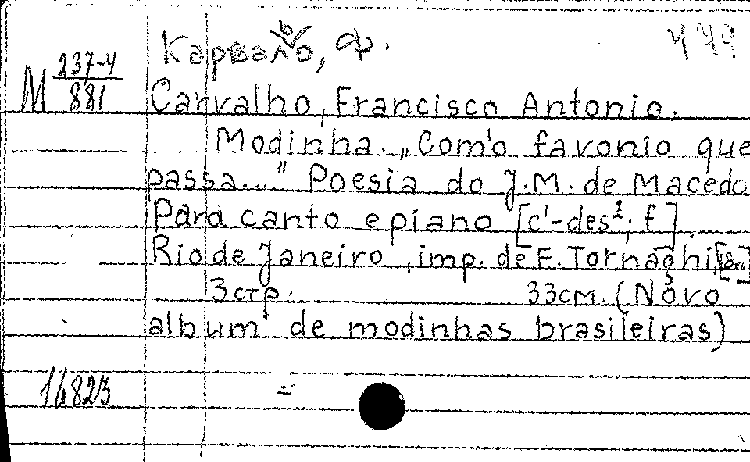 Карвальо, Ф.
M 237-4/881
Carvalho, Francisco Antonio.
Modinha. „Com'o favonio que
passa..." Poesia do J.M. de Macedo
Para canto e piano [c¹-des²; f].
Rio de Janeiro, imp. de E. Tornaghi,
3 стр. 33 см. (Novo
album de modinhas brasileiras)
16823